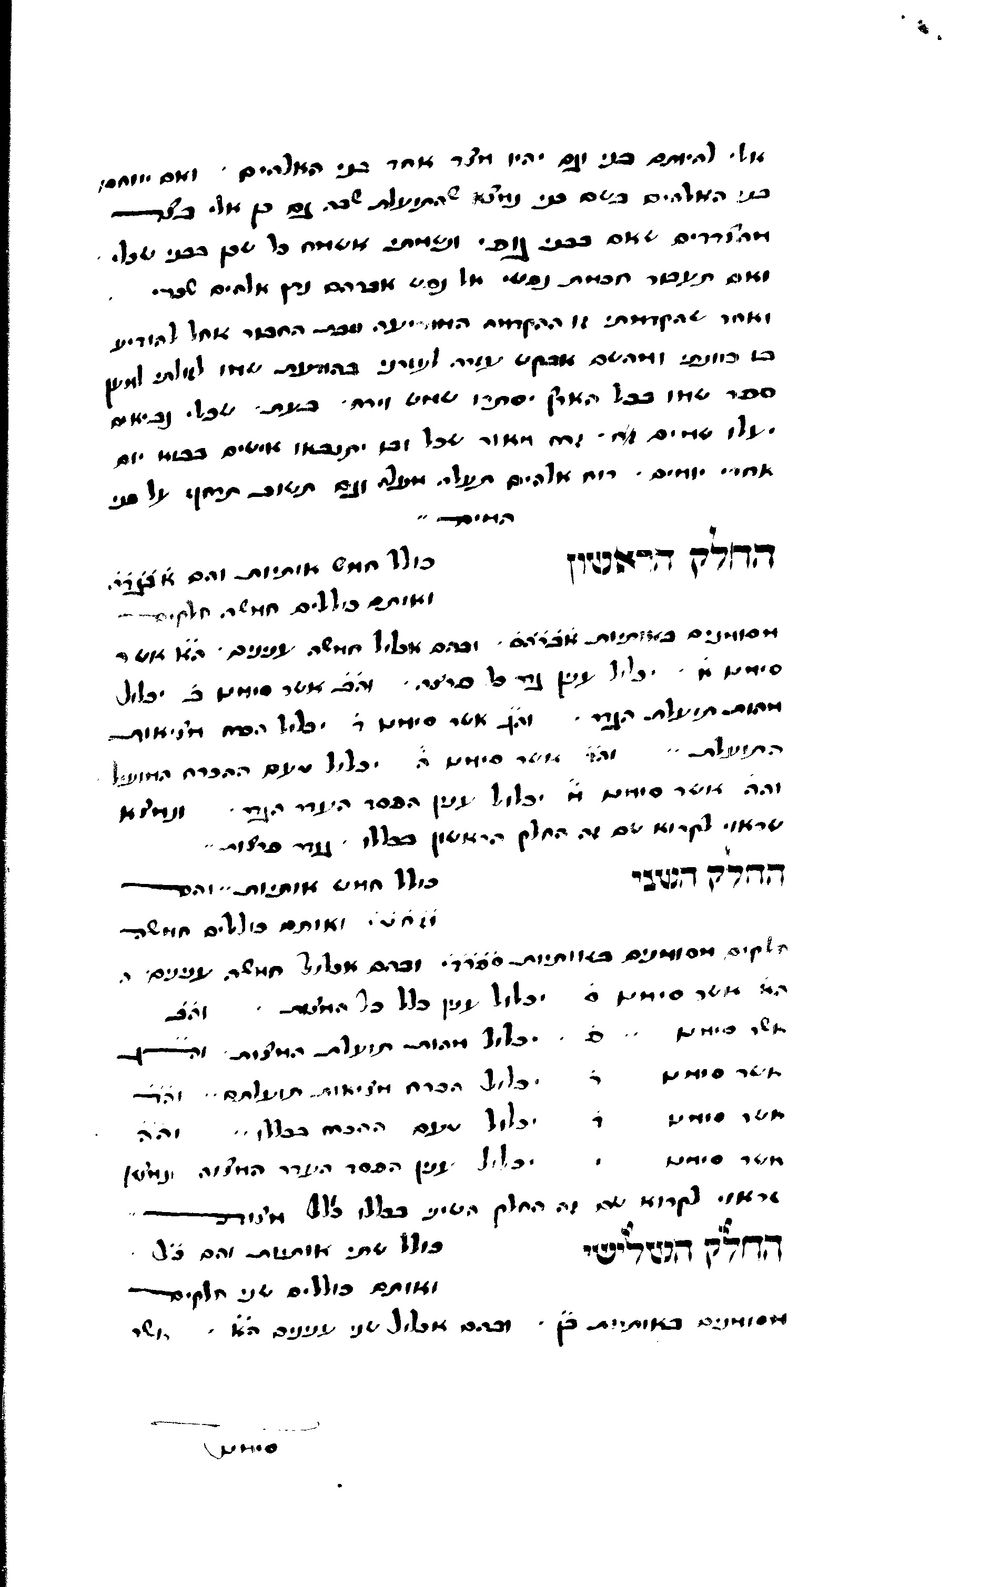 אלי להיותם בני וגם יהיו מצד אחד בני האלהים · ואם ייוחסו
בני האלהים בשם בני נמצא שהתועלת שבה גם כן אלי בצד
מהצדדים שאם בבני גופי ונשמתי אשמח כל שכן בבני שכלי ·
ואם תעבור חכמת נפשי אל נפש אברהם נזין אלהים שכרי ·
ואחר שהקדמתי זו ההקדמה המודיעה סבת החבור אחל להודיע
בו כוונתי ומהשם אבקש עזרה לעזרני בהודעת שמו לזולתי למען
ספר שמו בכל הארץ יסתרו שמש וירח · בעת · שכלי נביאים
יעלו שמים זרח · זרח מאור שכל ובו יתנבאו אישים בבוא יום
אחרי יומים · רוח אלהים תעלה מעלה וגם תשוב תרחף על פני
המים ״
החלק הראשון כולל חמש אותיות והם אבגדה
ואותם כוללים חמשה חלקים
מסומנים באותיות אברהם · ובהם אכלול חמשה ענינים · הא אשר
סימנו א · יכלול ענין גיד כל ערוה · והב אשר סימנו ב יכלול
מהות תועלת הגיד · והג אשר סימנו ר יכלול הכרח מציאות
התועלת ״ והד אשר סימנו ה יכלול טעם ההכרח המועיל
והה אשר סימנו ם יכלול ענין הפסד העדר הגיד · ונמצא
שראוי לקרוא שם זה החלק הראשון בכללו · נגד ערוות ״
החלק השני כולל חמש אותיות ״ והם
וזחטי ואותם כוללים חמשה
חלקים מסומנים באותיות ספרדי ובהם אכלול חמשה ענינים · ה
הא אשר סימנו ס יכלול ענין כלל כל המצות · והב
אשר סימנו ״ פ · יכלול מהות תועלת המצות · והג
אשר סימנו ר יכלול הכרח מציאות תועלתם ״ והד
אשר סימנו ד יכלול טעם ההכרח בכללו ״ והה
אשר סימנו י יכלול ענין הפסד העדר המצוה ונמצא
שראוי לקרוא שם זה החלק השיני בכללו כלל מצות ״
החלק השלישי כולל שתי אותיות והם כל ·
ואותם כוללים שני חלקים
מסומנים באותיות בן · ובהם אכלול שני ענינים הא · אשר
סימנו